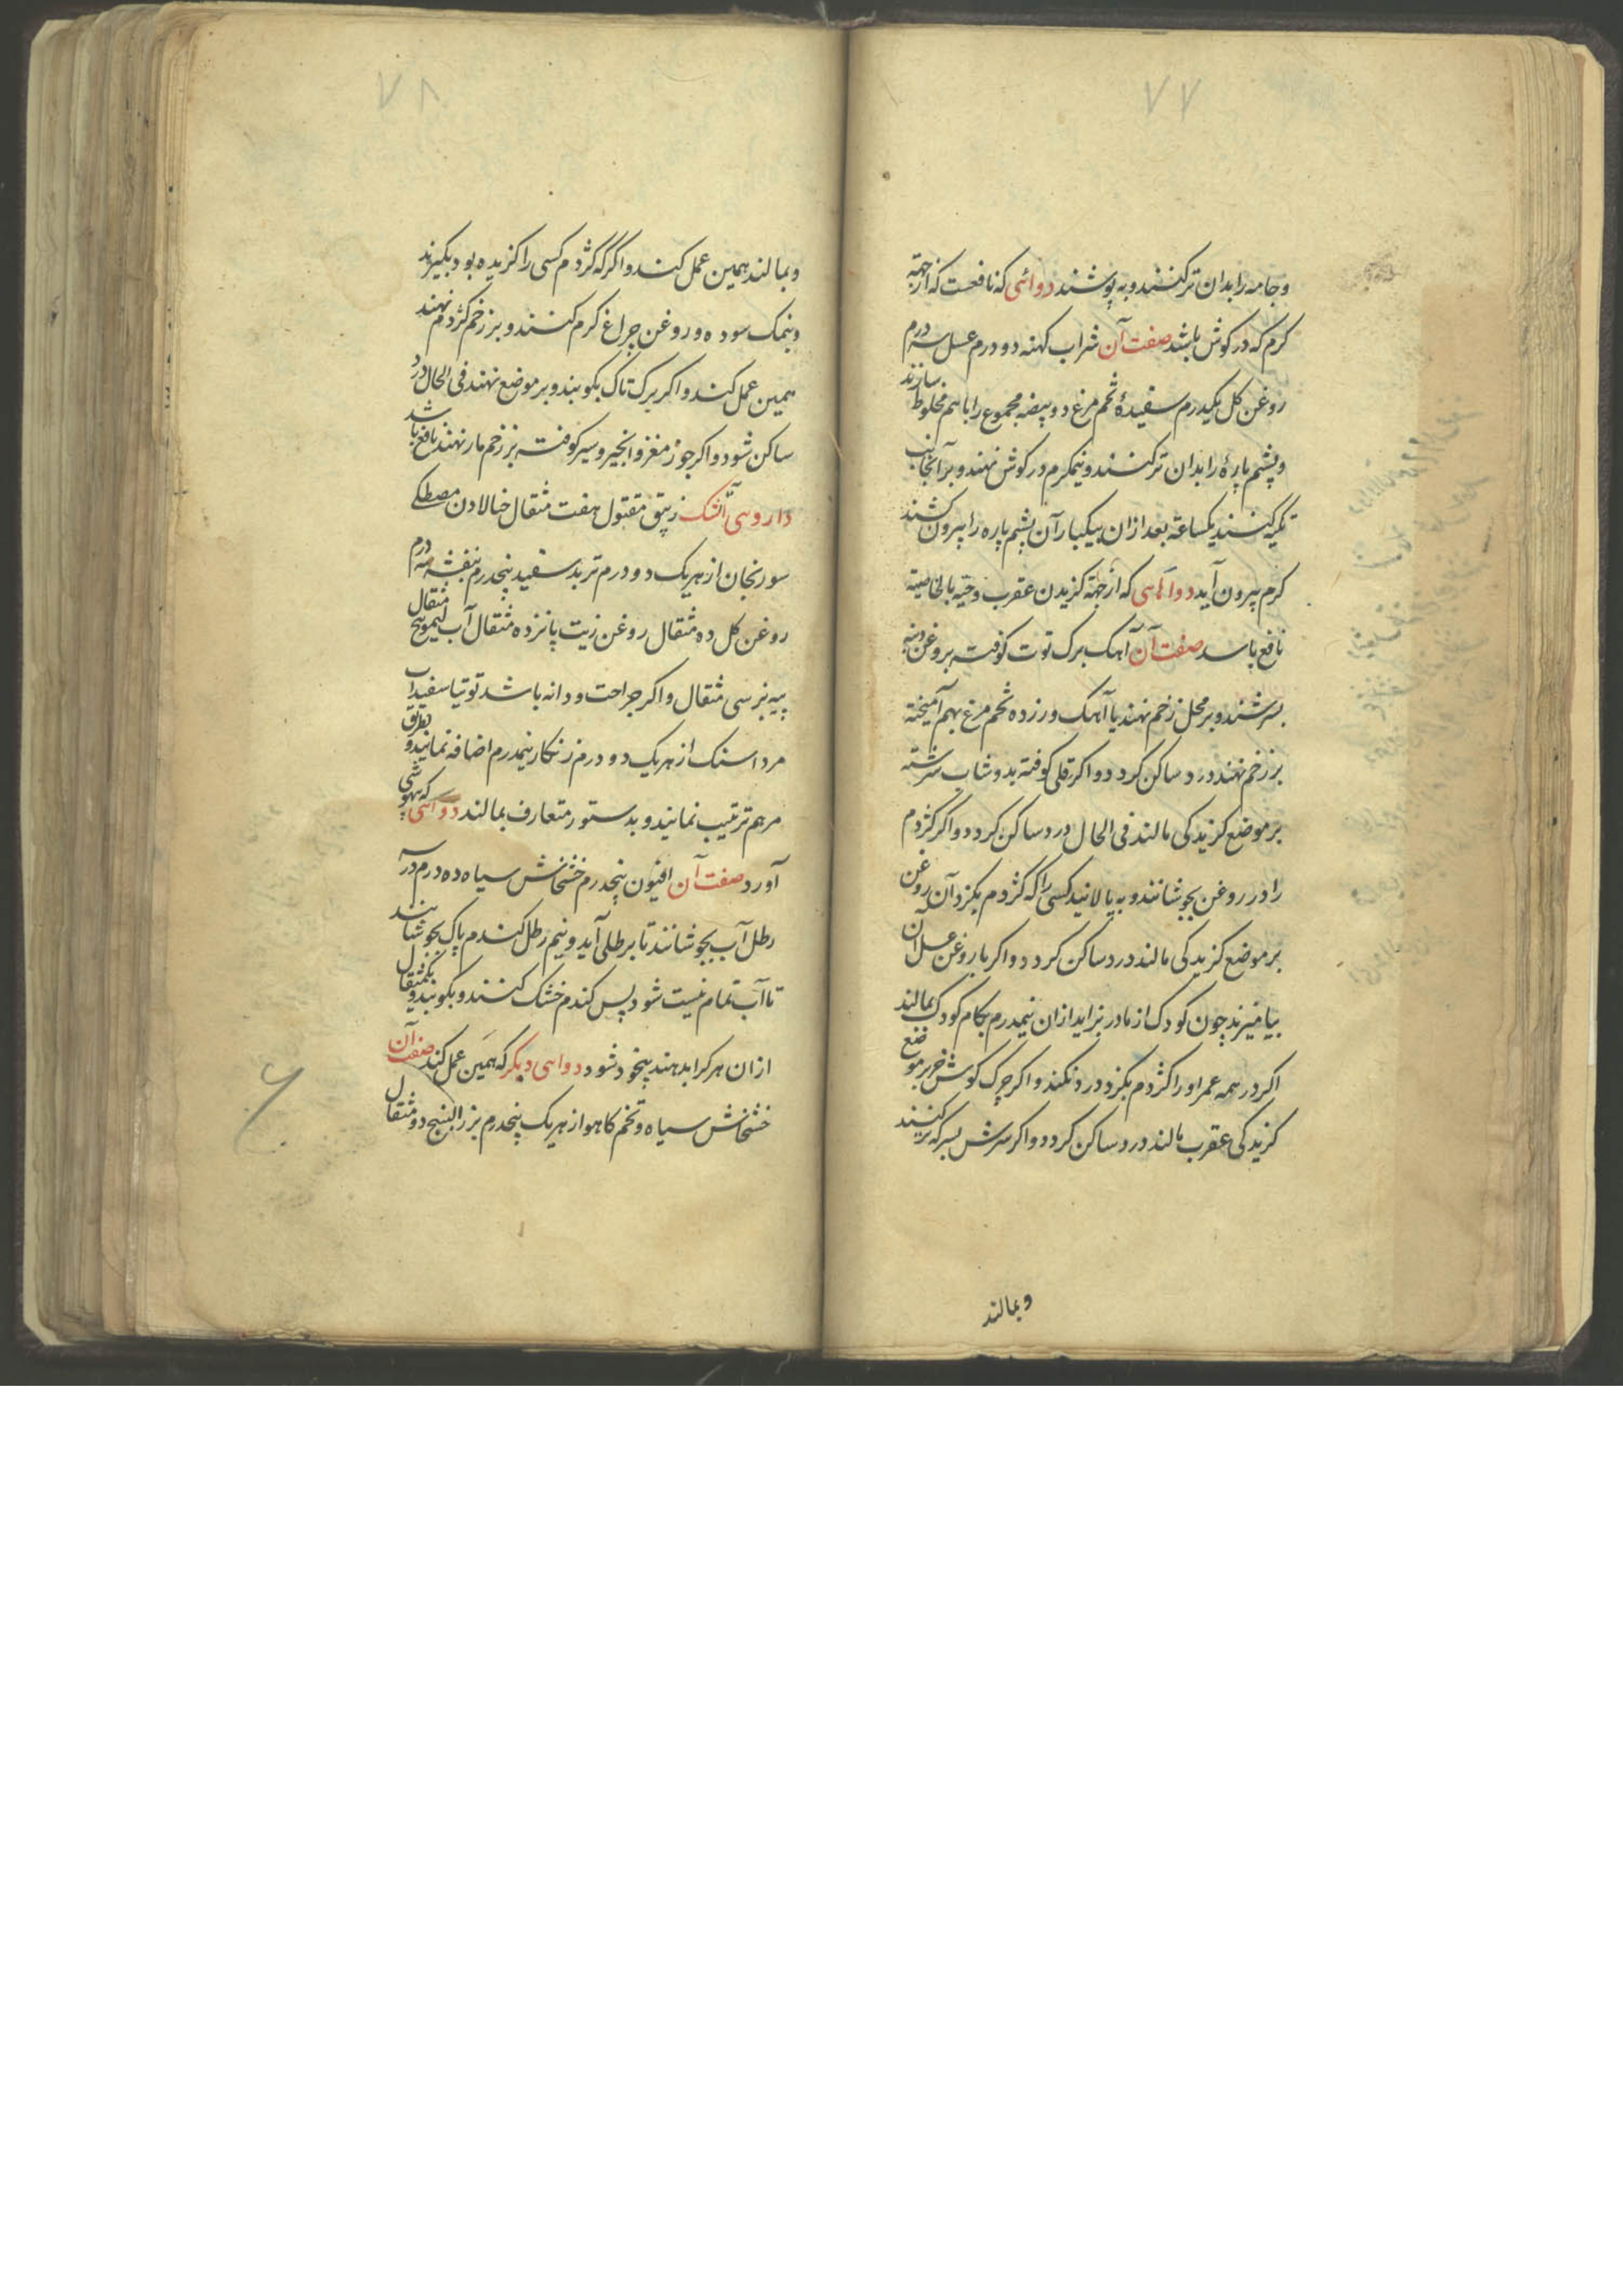 ۷۷
وجامه را بدان تر کنند و به پوشند دوائی که نافعست که از جهة
کرم که در کوش باشد صفت آن شراب کهنه دو درم عسل سه درم
روغن کل یکدرم سفیدهٔ تخم مرغ دو بیضه مجموع را باهم مخلوط سازند
و پشم پارهٔ را بدان تر کنند و نیمکرم در کوش نهند و بر آنجانب
تکیه کنند یکساعة بعد ازان بیکبار آن پشم پاره را بیرون کشند
کرم بیرون آید دواهای که از جهة کزیدن عقرب و حیّه بالخاصیة
نافع باسد صفت آن آهک برک توت کوفته بروغن
بسرشند و بر محل زخم نهند یا آهک و زرده تخم مرغ بهم آمیخته
بر زخم نهند درد ساکن کردد و اکر قلی کوفته بدوشاب سرشته
بر موضع کزیدکی مالند فی الحال درد ساکن کردد و اکر کژدم
را در روغن بجوشانند و به پالانید کسی را که کژدم بکزد آن روغن
بر موضع کزیدکی مالند درد ساکن کردد و اکر با روغن عسل آن
بیامیزند چون کودک از مادر بزاید ازان نیمدرم بکام کودک بمالند
اکر در همه عمر او را کژدم بکزد درد نکند و اکر چرک کوش خر بر موضع
کزیدکی عقرب مالند درد ساکن کردد و اکر سرش بسرکه تر کنند
وبمالند
۷۸
وبمالند همین عمل کند و اکر که کژدم کسی را کزیده بود بکیرند
ونمک سوده و روغن چراغ کرم کنند و بر زخم کژدم نهند
همین عمل کند و اکر برک تاک بکوبند و بر موضع نهند فی الحال درد
ساکن شود و اکر جوز مغز و انجیر و سیر کوفته بر زخم مار نهند نافع باشد
داروی آتشک زیبق مقتول هفت مثقال حنا لادن مصطکی
سورنجان از هریک دو درم تربد سفید پنجدرم بنفشه سه درم
روغن کل ده مثقال روغن زیت پانزده مثقال آب لیمو پنج مثقال
پیه بز سی مثقال و اکر جراحت و دانه باشد توتیا سفیداب
مرداسنک از هریک دو درم زنکار نیمدرم اضافه نمایند و بطریق
مرهم ترتیب نمایند و بدستور متعارف بمالند دوائی که بیهوشی
آورد صفت آن افیون پنجدرم خشخاش سیاه ده درم در سه
رطل آب بجوشانند تا برطلی آید و نیم رطل کندم پاک بجوشانند
تا آب تمام نیست شود پس کندم خشک کنند و بکوبند و یکمثقال
ازان هرکرا بدهند بیخود شود دوای دیکر که همین عمل کند صفت آن
خشخاش سیاه و تخم کاهو از هریک پنجدرم بزر البنج دو مثقال